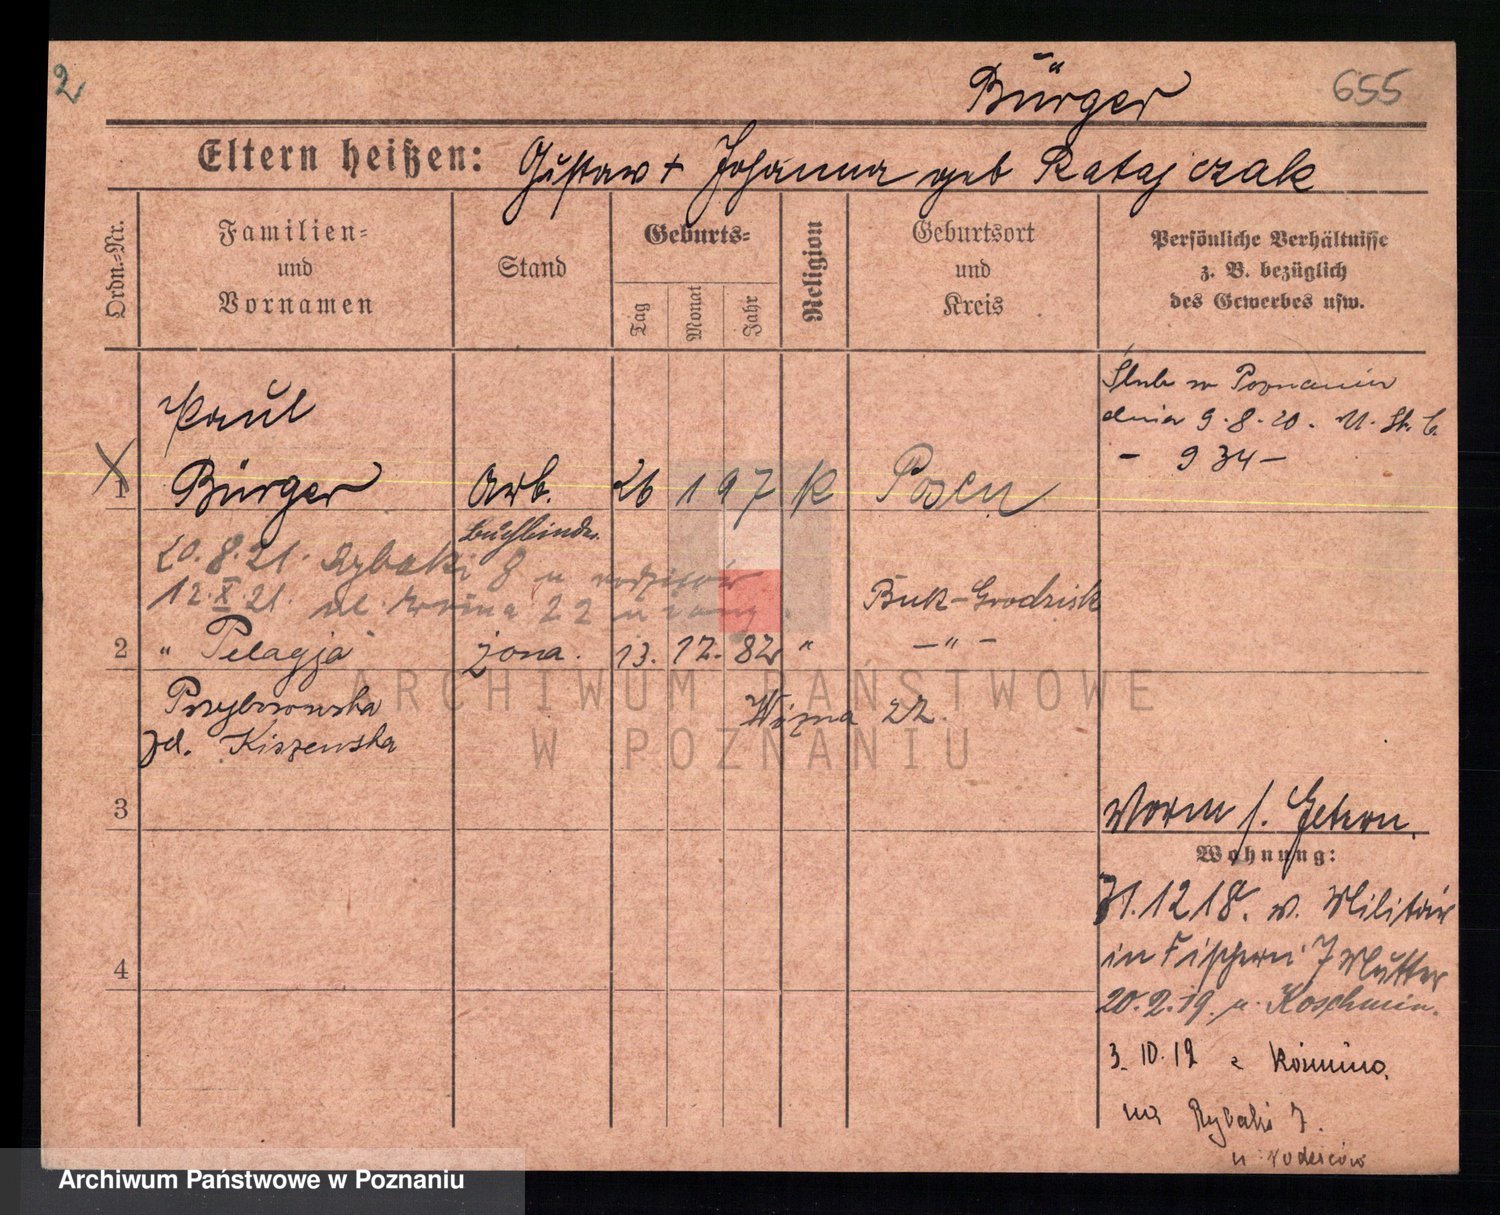 2
Bürger
655
Eltern heißen: Gustaw + Johanna geb Ratajczak
Ordn.-Nr.
Familien-
und
Vornamen
Stand
Geburts-
Tag
Monat
Jahr
Religion
Geburtsort
und
Kreis
Persönliche Verhältnisse
z. B. bezüglich
des Gewerbes usw.
Ślub w Poznaniu
dnia 9.8.20. U. St. C.
- 934 -
Paul
1 Bürger Arb. 26 1 97 K Posen
Buchbinder
20.8.21. Rybaki 8 u rodziców
12.X.21. ul. 22
Buk-Grodzisk
2 " Pelagja żona. 13. 12. 82 " -"-
Przybrowska
zd. Kiszewska
22.
3
Vorm s. Eltern.
Wohnung:
31.12 18. v. Militär
in Fischerei 7 Mutter
20.2.19. n. Koschmin.
4
3.10.19 z Koźmina
na Rybaki 7.
u rodziców
ARCHIWUM PAŃSTWOWE
W POZNANIU
Archiwum Państwowe w Poznaniu